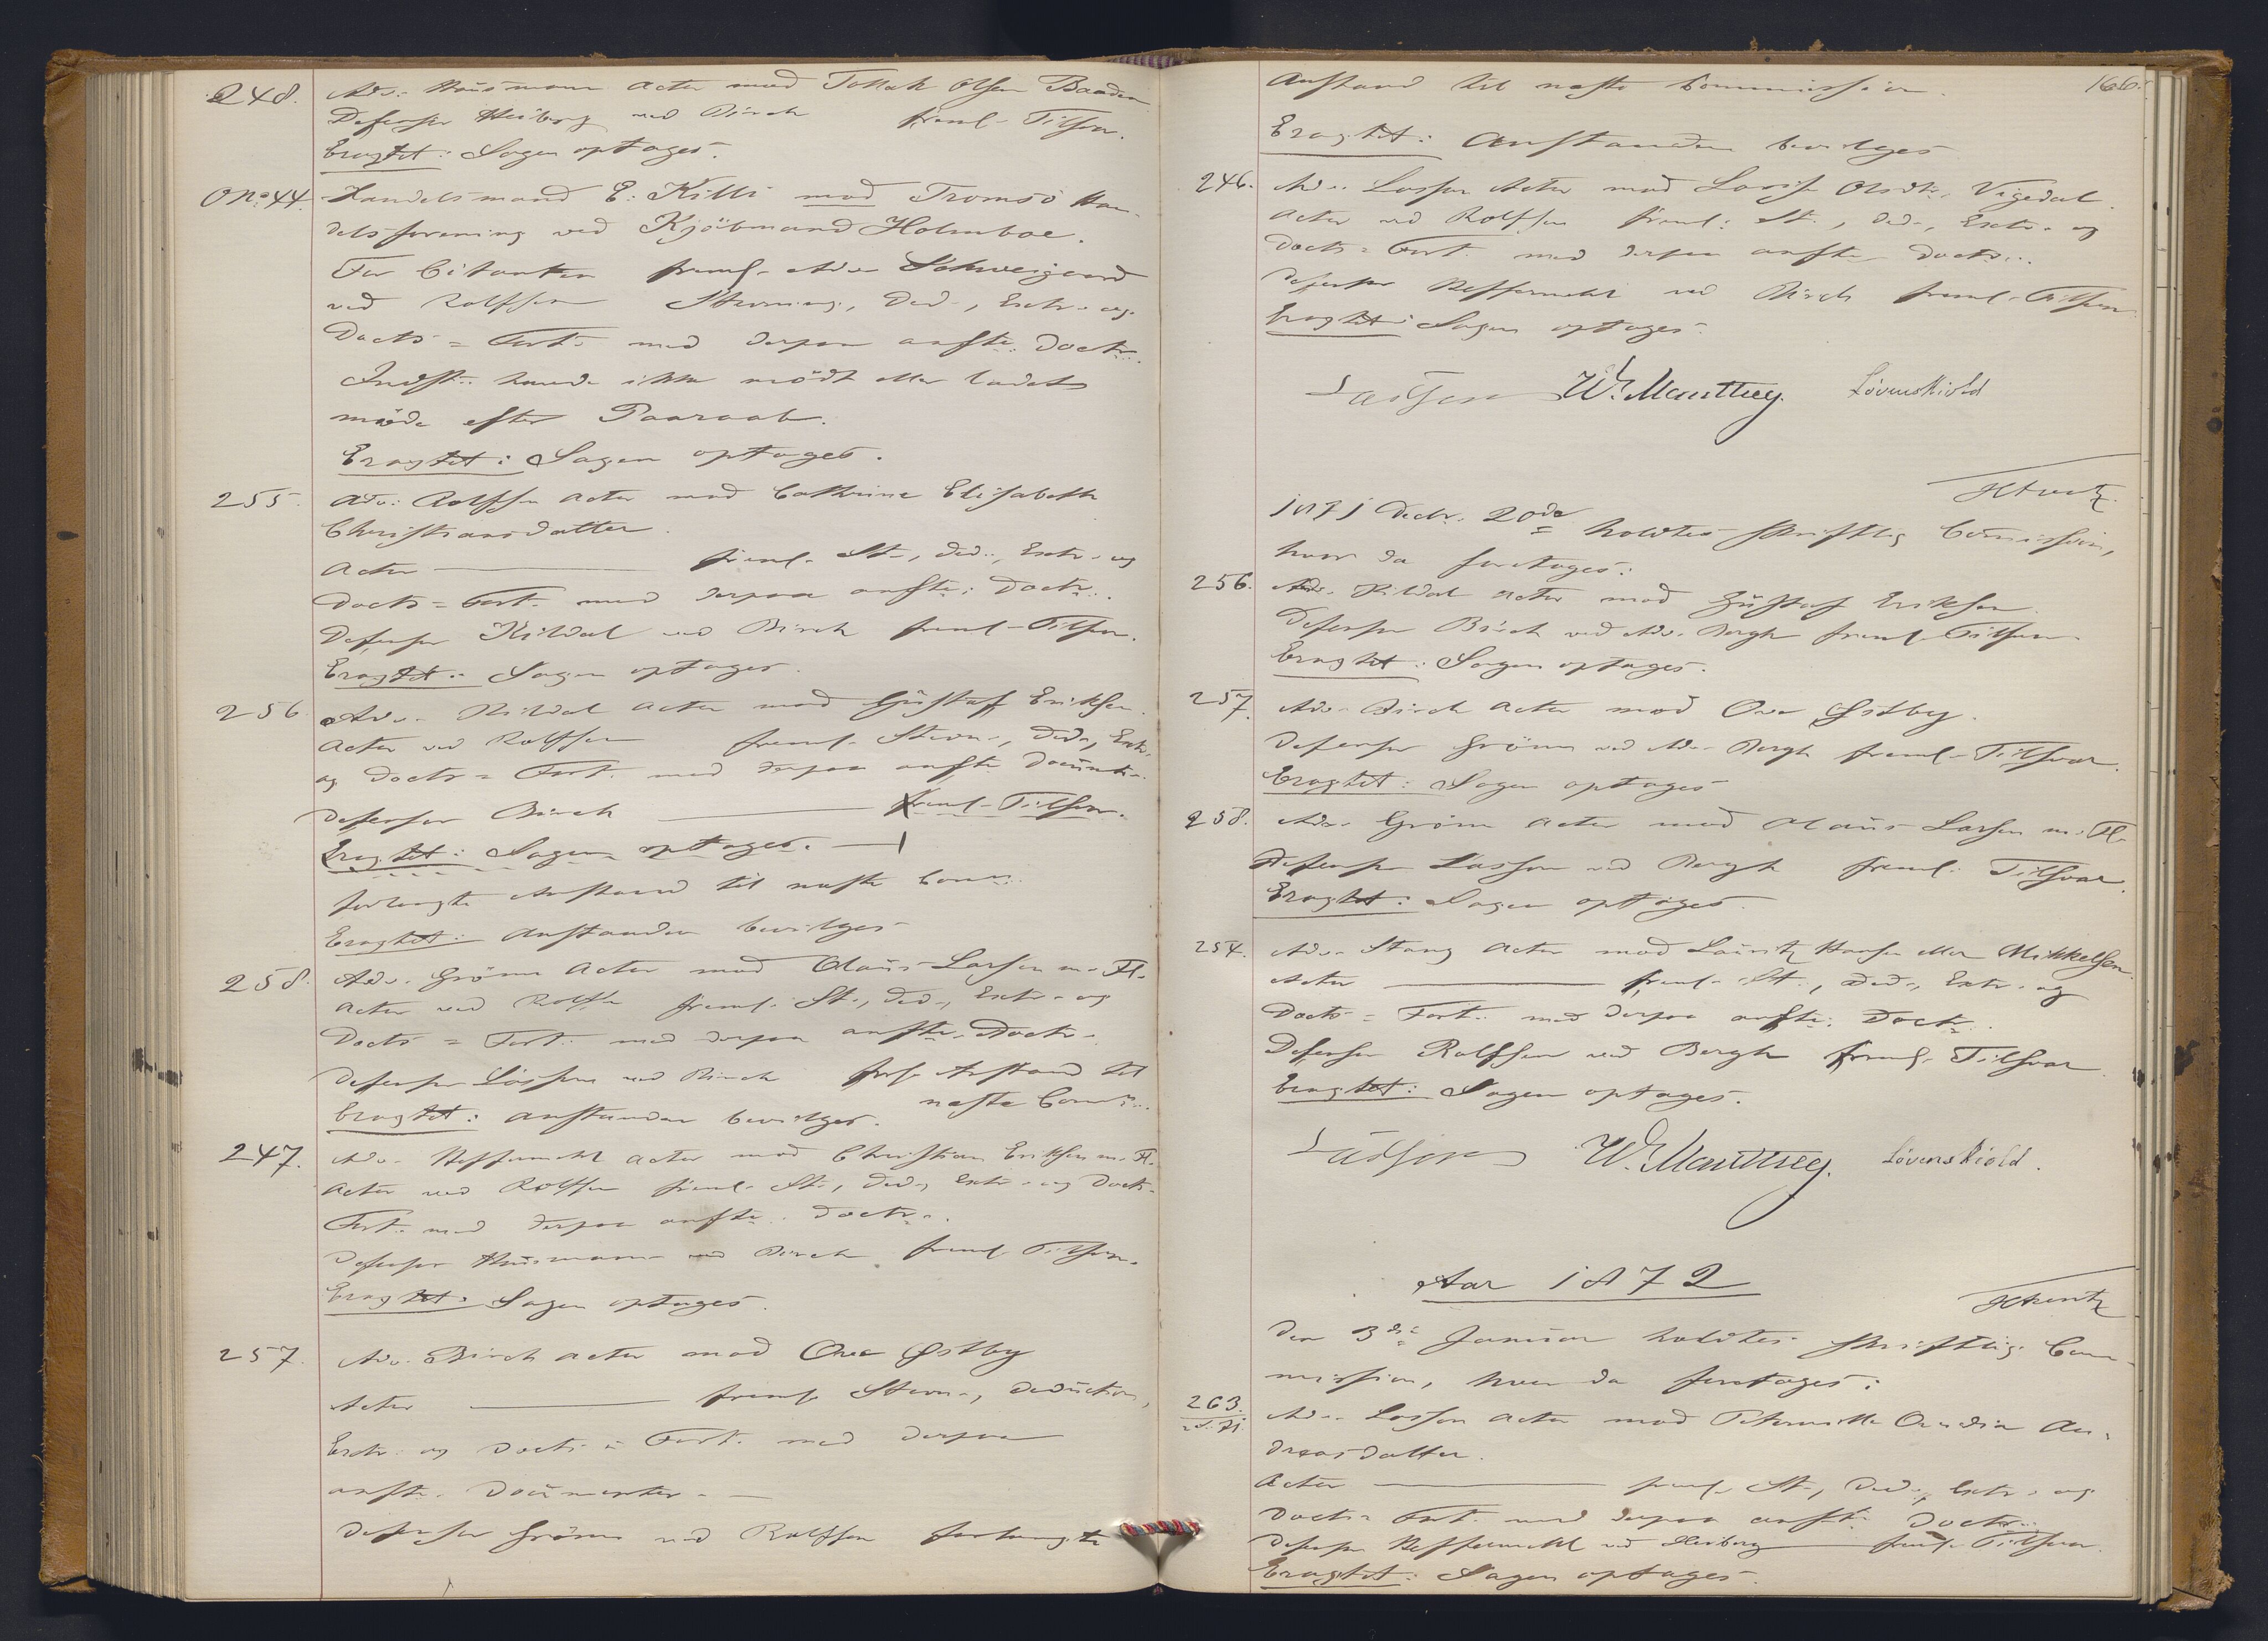 248. Adv. Husmann Actor mod Tollak Olsen Baaden
Defensor Heiberg ved Birch freml. Tilsvar.
Eragtet: Sagen optages.
O No 44. Handelsmand E. Killi mod Tromsö Han-
delsforening ved Kjöbmand Holmboe.
For Citanten freml. Adv. Schweigaard
ved Rolfsen Stevning, Ded., Extr. og
Docts = Fort. med derpaa anfte. Doctr.
Indst. havde ikke mödt eller ladet
möde efter Paaraab.
Eragtet: Sagen optages.
255. Adv: Rolfsen Actor mod Cathrine Elisabeth
Christiansdatter.
Actor freml. St., Ded., Extr. og
Docts = Fort. med derpaa anfte. Doctr.
Defensor Kildal ved Birch freml. Tilsvar.
Eragtet: Sagen optages.
256 Adv. Kildal Actor mod Gustaf Eriksen.
Actor ved Rolfsen freml. Stevn., Ded., Extr.
og Doctr = Fort. med derpaa anfte Documtr.
Defensor Birch freml. Tilsvar.
Eragtet: Sagen optages.
forlangte Anstand til næste Comm.
Eragtet: Anstanden bevilges
258. Adv. Grönn Actor mod Olaus Larsen m. Fl.
Actor ved Rolfsen freml. St., Ded., Extr. og
Docts = Fort. med derpaa anfte. Doctr.
Defensor Lasson ved Birch forl. Anstand til
næste Comm.
Eragtet: Anstanden bevilges.
247. Adv. Hessenmehl Actor mod Christian Eriksen m. Fl.
Actor ved Rolfsen freml. St., Ded., Extr. og Docts-
Fort. med derpaa anfte. Doctr.
Defensor Husmann ved Birch freml. Tilsvar.
Eragtet: Sagen optages.
257. Adv. Birch Actor mod Ove Østby
Actor freml. Stevn., Deduction,
Extr. og Docts = Fort. med derpaa
anfte. Documenter.
Defensor Grönn ved Rolfsen forlangte
166.
Anstand til næste Commission.
Eragtet: Anstanden bevilges
246. Adv. Lasson Actor mod Lovise Olsdtr. Vigedal.
Actor ved Rolfsen freml. St., Ded., Extr. og
Docts = Fort. med derpaa anfte Doctr.
Defensor Hessenmehl ved Birch freml. Tilsvar.
Eragtet: Sagen optages.
Lasson W. Manthey. Lövenskiold
1871 Decbr. 20de holdtes skriftlig Commission,
hvor da foretages:
256. Adv. Kildal Actor mod Gustaf Eriksen.
Defensor Birch ved Adv. Bergh freml. Tilsvar.
Eragtet: Sagen optages.
257. Adv. Birch Actor mod Ove Østby.
Defensor Grönn ved Adv. Bergh freml. Tilsvar.
Eragtet: Sagen optages
258. Adv. Grönn Actor mod Olaus Larsen m. Fl.
Defensor Lasson ved Bergh freml. Tilsvar.
Eragtet: Sagen optages.
254. Adv. Stang Actor mod Lauritz Hansen eller Mikkelsen.
Actor freml. St., Ded., Extr. og
Docts = Fort. med derpaa anfte. Doctr.
Defensor Rolfsen ved Bergh freml. Tilsvar.
Eragtet: Sagen optages.
Lasson W. Manthey. Lövenskiold.
Aar 1872
den 3die Januar holdtes skriftlig Com-
mission, hvor da foretages:
263. Adv. Lasson Actor mod Peternille An-
dreasdatter.
Actor freml. St., Ded., Extr. og
Docts = Fort. med derpaa anfte. Doctr.
Defensor Hessenmehl ved Heiberg freml. Tilsvar.
Eragtet: Sagen optages.